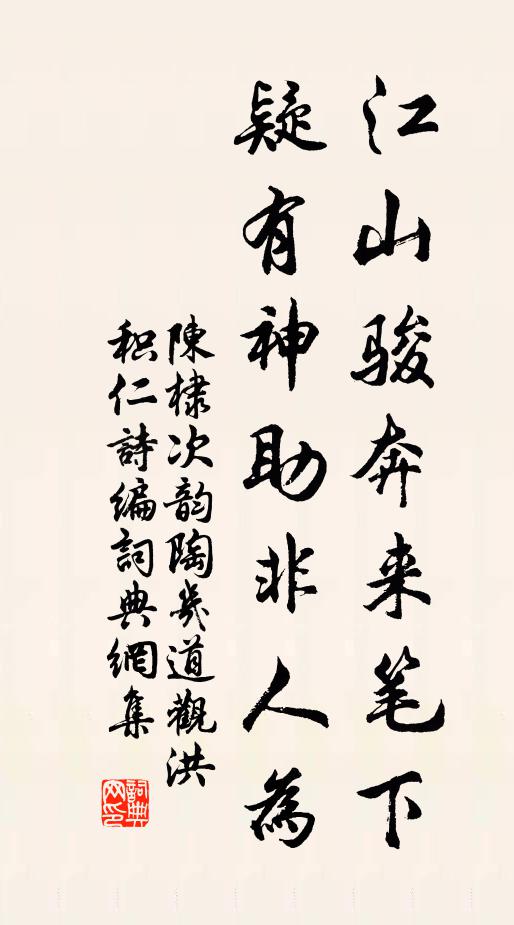 江山骏奔来笔下
疑有神助非人為
陳棣次韵陶幾道觀洪
积仁詩編詞典網集
詞典网印